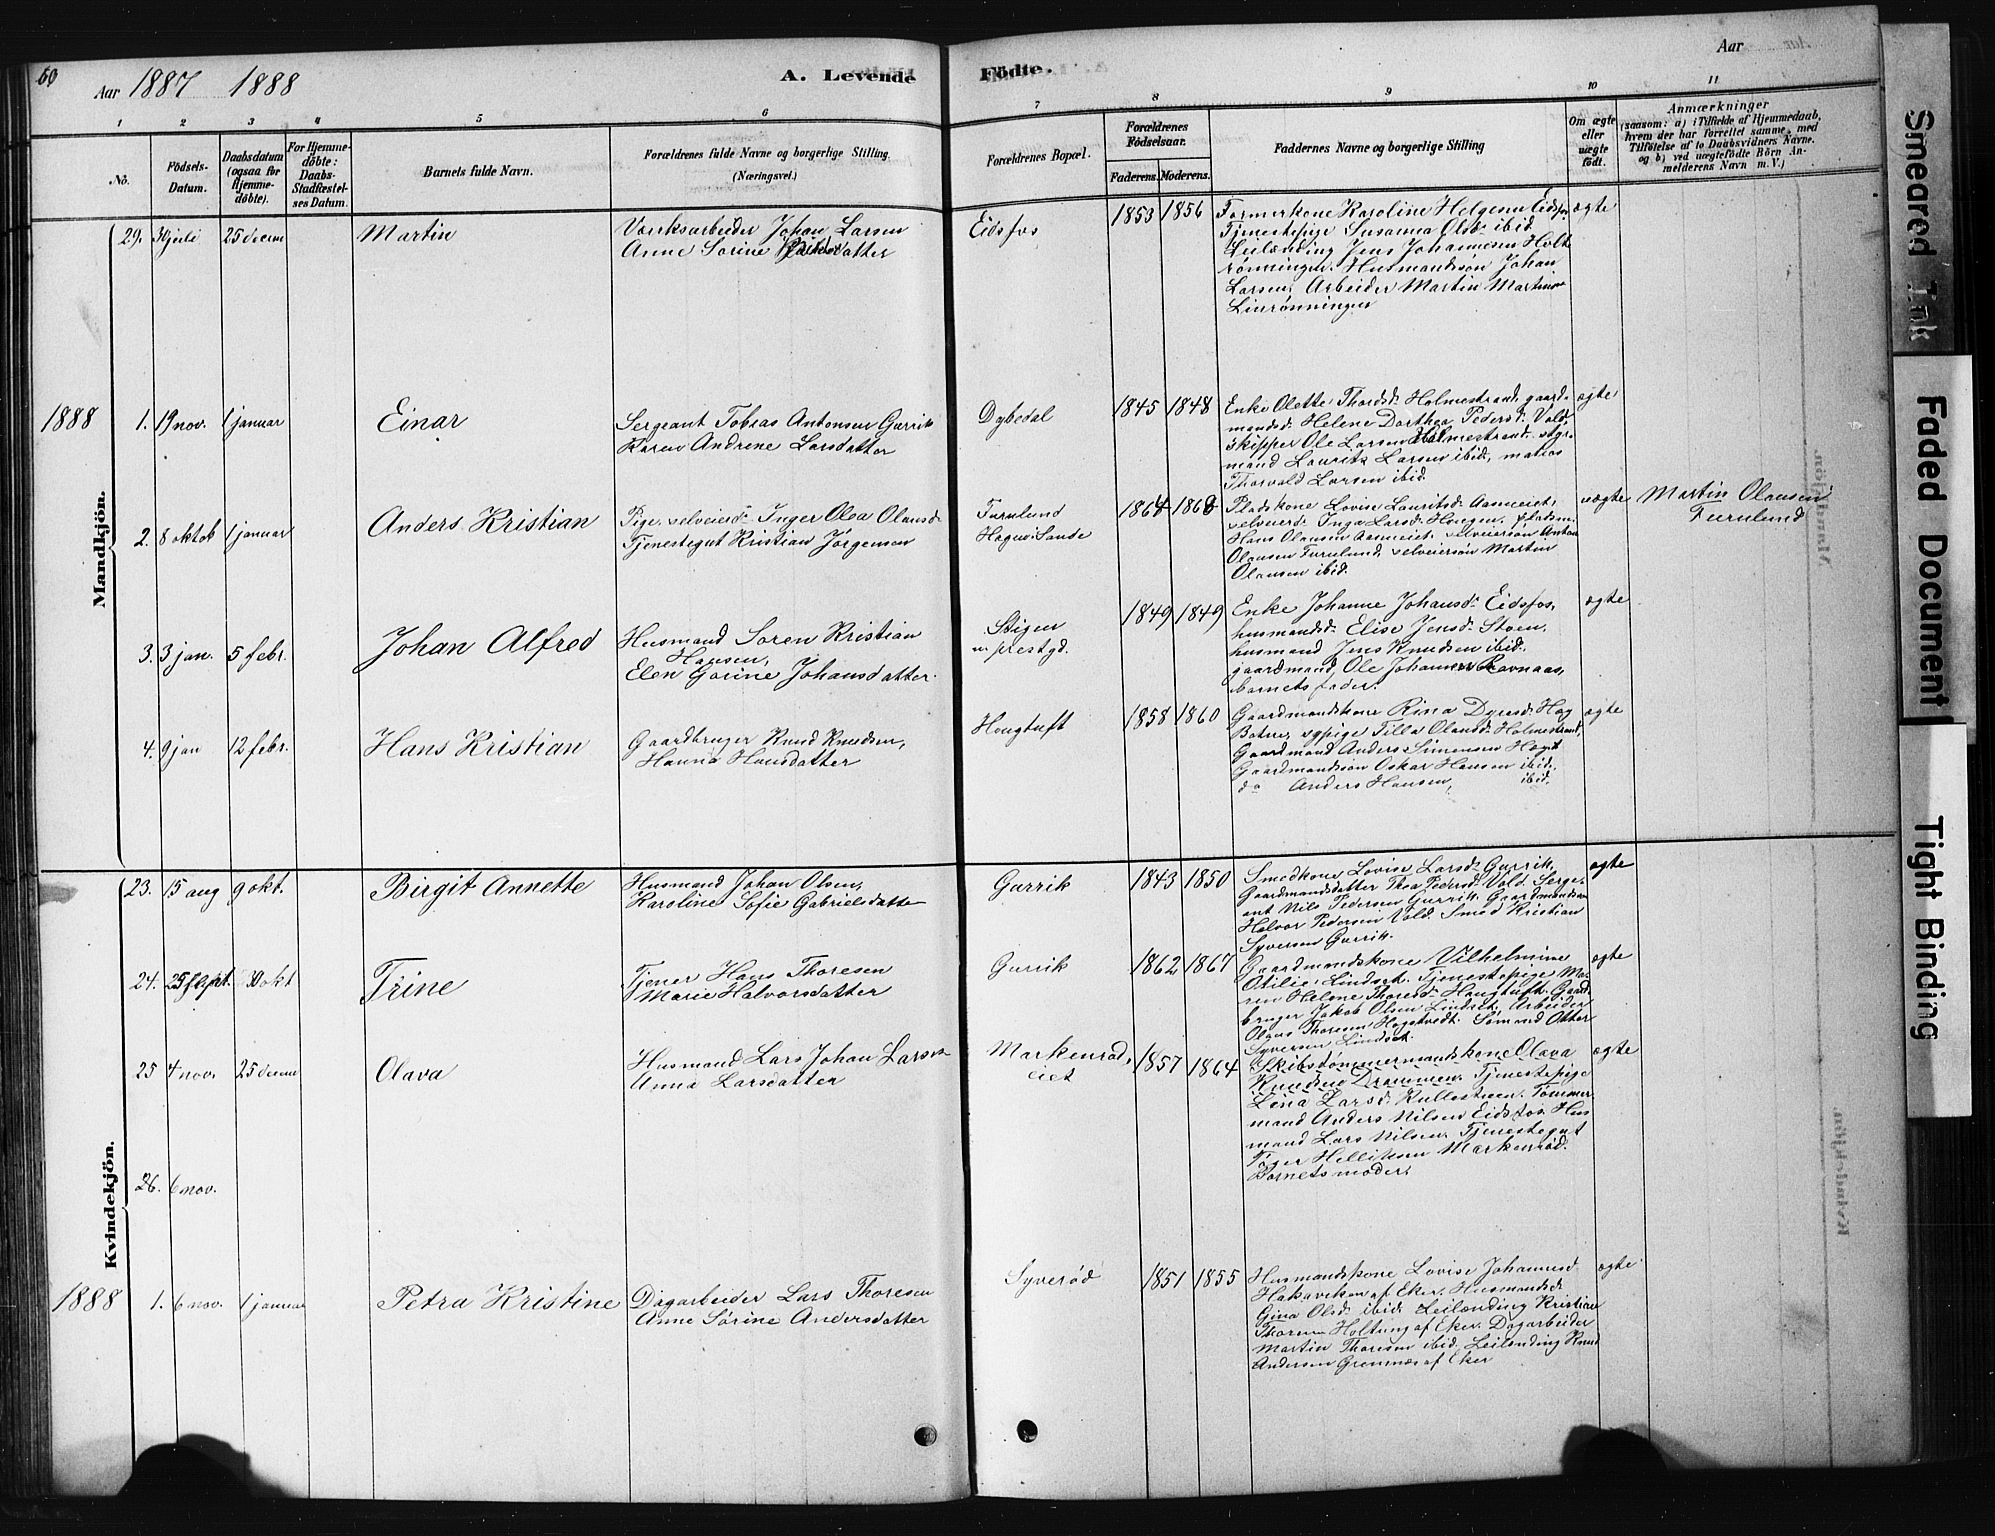 60
Aar 1887 1888
A. Levende Födte.
Aar
1 2 3 4 5 6 7 8 9 10 11
No.
Födsels-Datum.
Daabsdatum (ogsaa for Hjemmedøbte).
For Hjemmedöbte: Daabs-Stadfæstelses Datum.
Barnets fulde Navn.
Forældrenes fulde Navne og borgerlige Stilling.
(Næringsvei.)
Forældrenes Bopæl.
Forældrenes Födselsaar.
Faderens. Moderens.
Faddernes Navne og borgerlige Stilling
Om ægte eller uægte födt.
Anmærkninger
(saasom: a) i Tilfælde af Hjemmedaab,
hvem der har forrettet samme, med
Tilföielse af to Daabsvidners Navne.
og b) ved uægtefödte Börn Anmelderens Navn m. V.)
Mandkjön.
29. juli 25 decem Martin
Værksarbeider Johan Larsen
Anne Sorine
Eidsfos
1853 1856
Farmerkone Karoline Helgesen Eidsfos
Tjenestepige Susanna Olsd. ibid
Leilænding Jens Johannesen Holt
rønningen. Husmandssøn Johan
Larsen, Arbeider Martin
Linrønningen
ægte
1888
1. 19 nov. 1 januar Einar
Sergeant Tobias Antonsen Gurrik
Karen Andrine Larsdatter
Dybedal
1845 1848
Enke Olette Thordsd. Holmestrand, gaard-
mandsd. Helene Dorthea Pedersd. Vold,
skipper Ole Larsen Holmestrand, styr-
mand Laurits Larsen ibid, matros
Thorvald Larsen ibid.
ægte
2. 8 oktob 1 januar Anders Kristian
Pige, selveiersd. Inger Olea Olausd.
Tjenestegut Kristian Jørgensen
Furulund
Hagen i Sande
Pladskone Lovise Lauritsd. Aasneiet,
selveiersd. Inga Larsd. Haugen, pladsm.
Hans Olausen Aasneiet, selveiersøn Anton
Olausen Furulund, selveiersøn Martin
Olausen ibid.
uægte
Martin Olausen
Furulund
3. 3 jan. 5 febr. Johan Alfred
Husmand Soren Kristian
Hansen,
Elen Gorine Johansdatter.
Stigen
u. prestgd.
1849 1849
Enke Johanne Johansd. Eidsfos,
husmandsd. Elise Jensd. Stoen,
husmand Jens Knudsen ibid.
gaardmand, Ole Johannesen Ravnaas,
barnets fader.
ægte
4. 9 jan 12 febr. Hans Kristian
Gaardbruger Knud Knudsen,
Hanna Hansdatter
Haugtuft
1858 1860
Gaardmandskone Rina Dyresd. Hag
Botne, sypige Tilla Olausd. Holmestrand,
Gaardmand Anders Simensen Hagt
Gaardmandssøn Oskar Hansen ibid.
do Anders Hansen, ibid.
ægte
Kvindekjön.
23. 15 aug 9 okt. Birgit Annette
Husmand Johan Olsen,
Karoline Sofie Gabrielsdatter
Gurrik
1843 1850
Smedkone Lovise Larsd. Gurrik.
Gaardmandsdatter Thea Pedersd. Vold. Serge-
ant Nils Pedersen Gurrik. Gaardmandssøn
Halvor Pedersen Vold. Smed Kristian
Syversen Gurrik.
ægte
24. 25 sept. 30 okt Trine
Tjener Hans Thoresen
Marie Halvorsdatter
Gurrik
1862 1867
Gaardmandskone Vilhelmine
Otilie Lindset. Tjenestepige Ma-
ren Helene Thoresd. Haugtuft. Gaard-
bruger Jakob Olsen Lindset. Arbeider
Olaus Thoresen Hagtvedt. Sømand Otter
Syversen Lindset.
ægte
25 4 nov. 25 decem Olava
Husmand Lars Johan Larsen
Anna Larsdatter
Markenrød
eiet
1857 1864
Skibstømmermandskone Olava
Knudsen Drammen. Tjenestepige
Lina Larsd. Kullestuen. Tømmer
mand Anders Nilsen Eidsfos. Hus
mand Lars Nilsen. Tjenestegut
Markenrød.
Barnets moder.
ægte
26. 6 nov.
1888
1. 6 nov. 1 januar Petra Kristine
Dagarbeider Lars Thoresen
Anne Sørine Andersdatter
Syverød
1851 1855
Husmandskone Lovise Johannesd
Hakaviken af Eker. Husmandsd.
Gina Olsd. ibid. Leilænding Kristian
Thoresen Holtung af Eker. Dagarbeider
Martin Thoresen ibid. Leilænding Knud
Andersen Grennes af Eker
ægte
Smeared Ink
Faded Document
Tight Binding